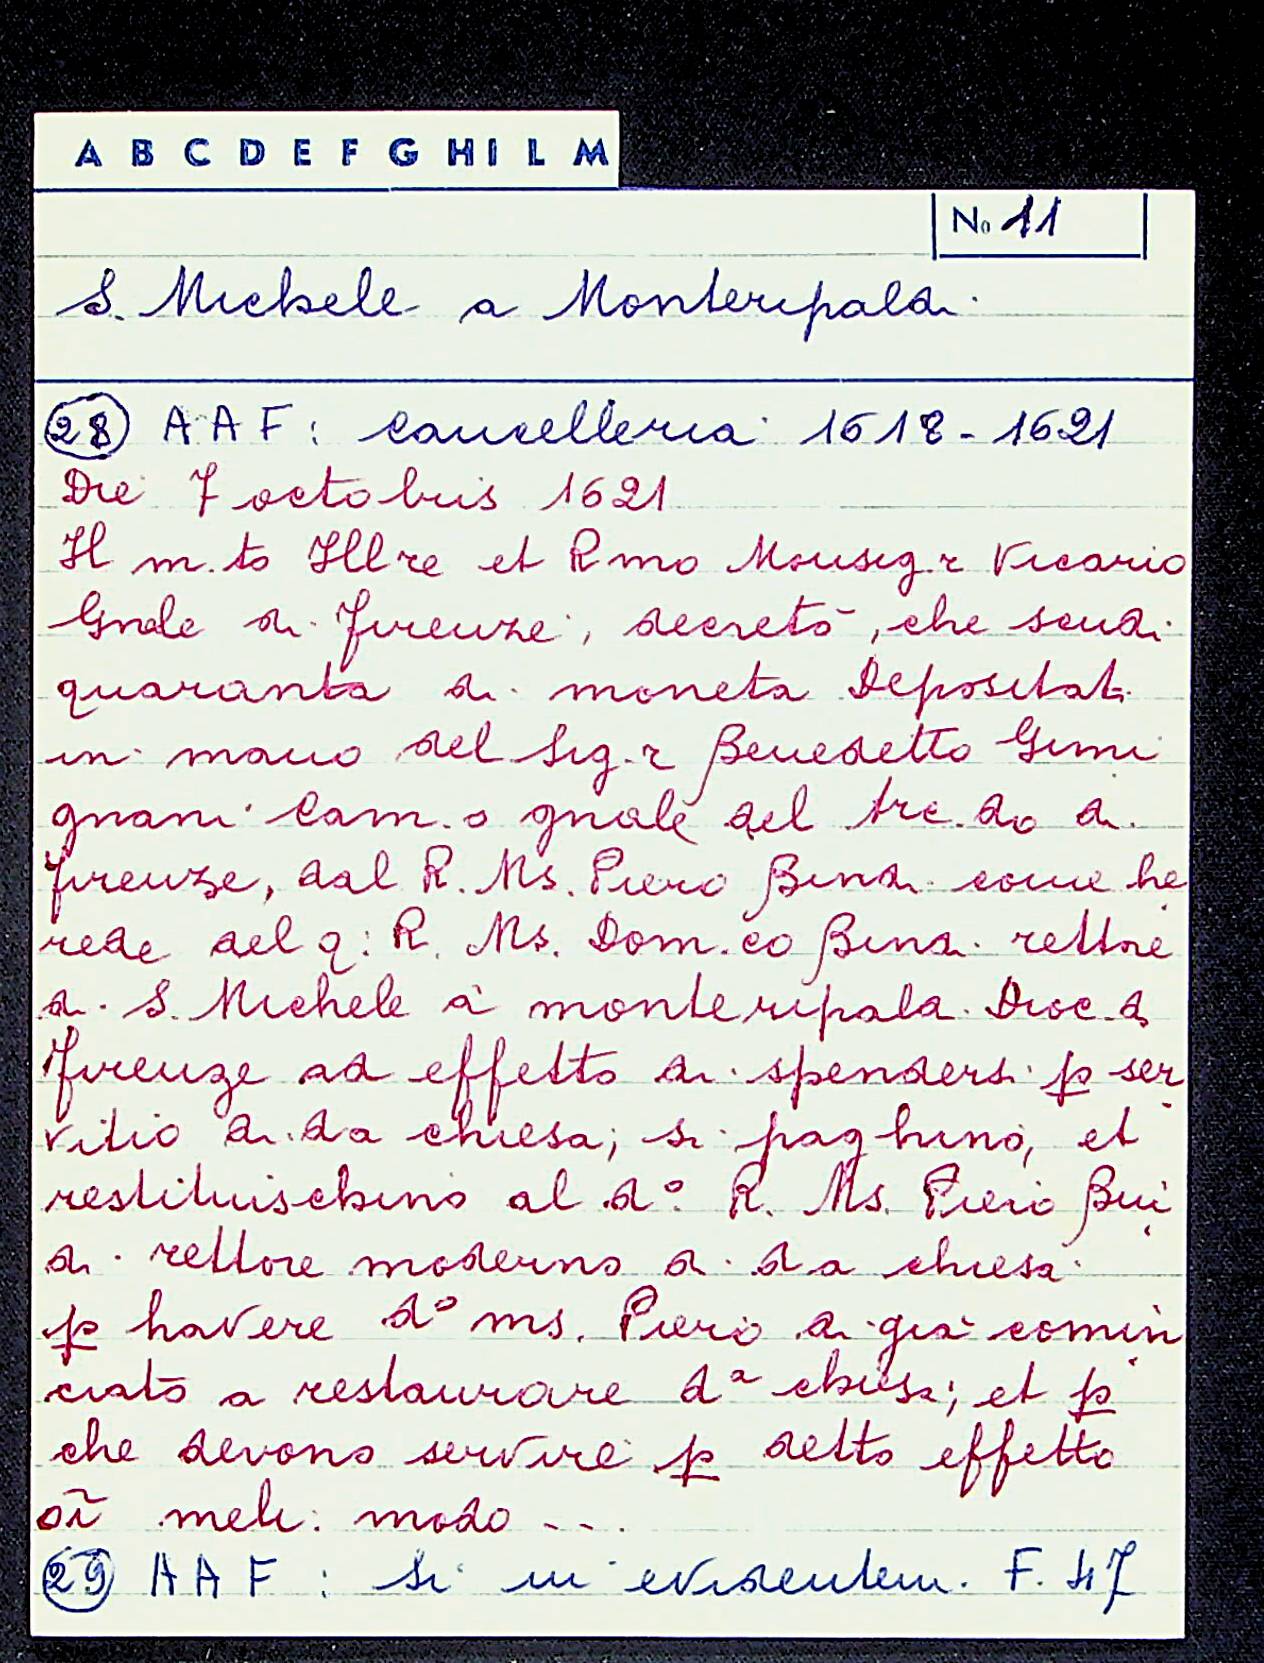 A B C D E F G H I L M
No 11
S. Michele a Monteripaldi
28 AAF: Cancelleria 1618-1621
Die 7 octobris 1621
Il m.to Illre et Rmo Monsig.r Vicario
Gnale di Firenze, decretò, che scudi
quaranta di moneta Depositati
in mano del Sig.r Benedetto Gimi
gnani Cam.o gnale del Arc.do di
Firenze, dal R. Ms. Piero Bindi come he
rede del q: R. Ms. Dom.co Bindi rettore
di S. Michele à monteripaldi Dioc. di
Firenze ad effetto di spendersi p ser
vitio di da chiesa; si paghino, et
restituischino al d° R. Ms. Piero Bin
di rettore moderno di da chiesa
p havere d° ms. Piero di già comin
ciato a restaurare dª chiesa; et p
che devono servire p detto effetto
oĩ meli: modo ...
29 AAF: Si in evidentem. F. 47